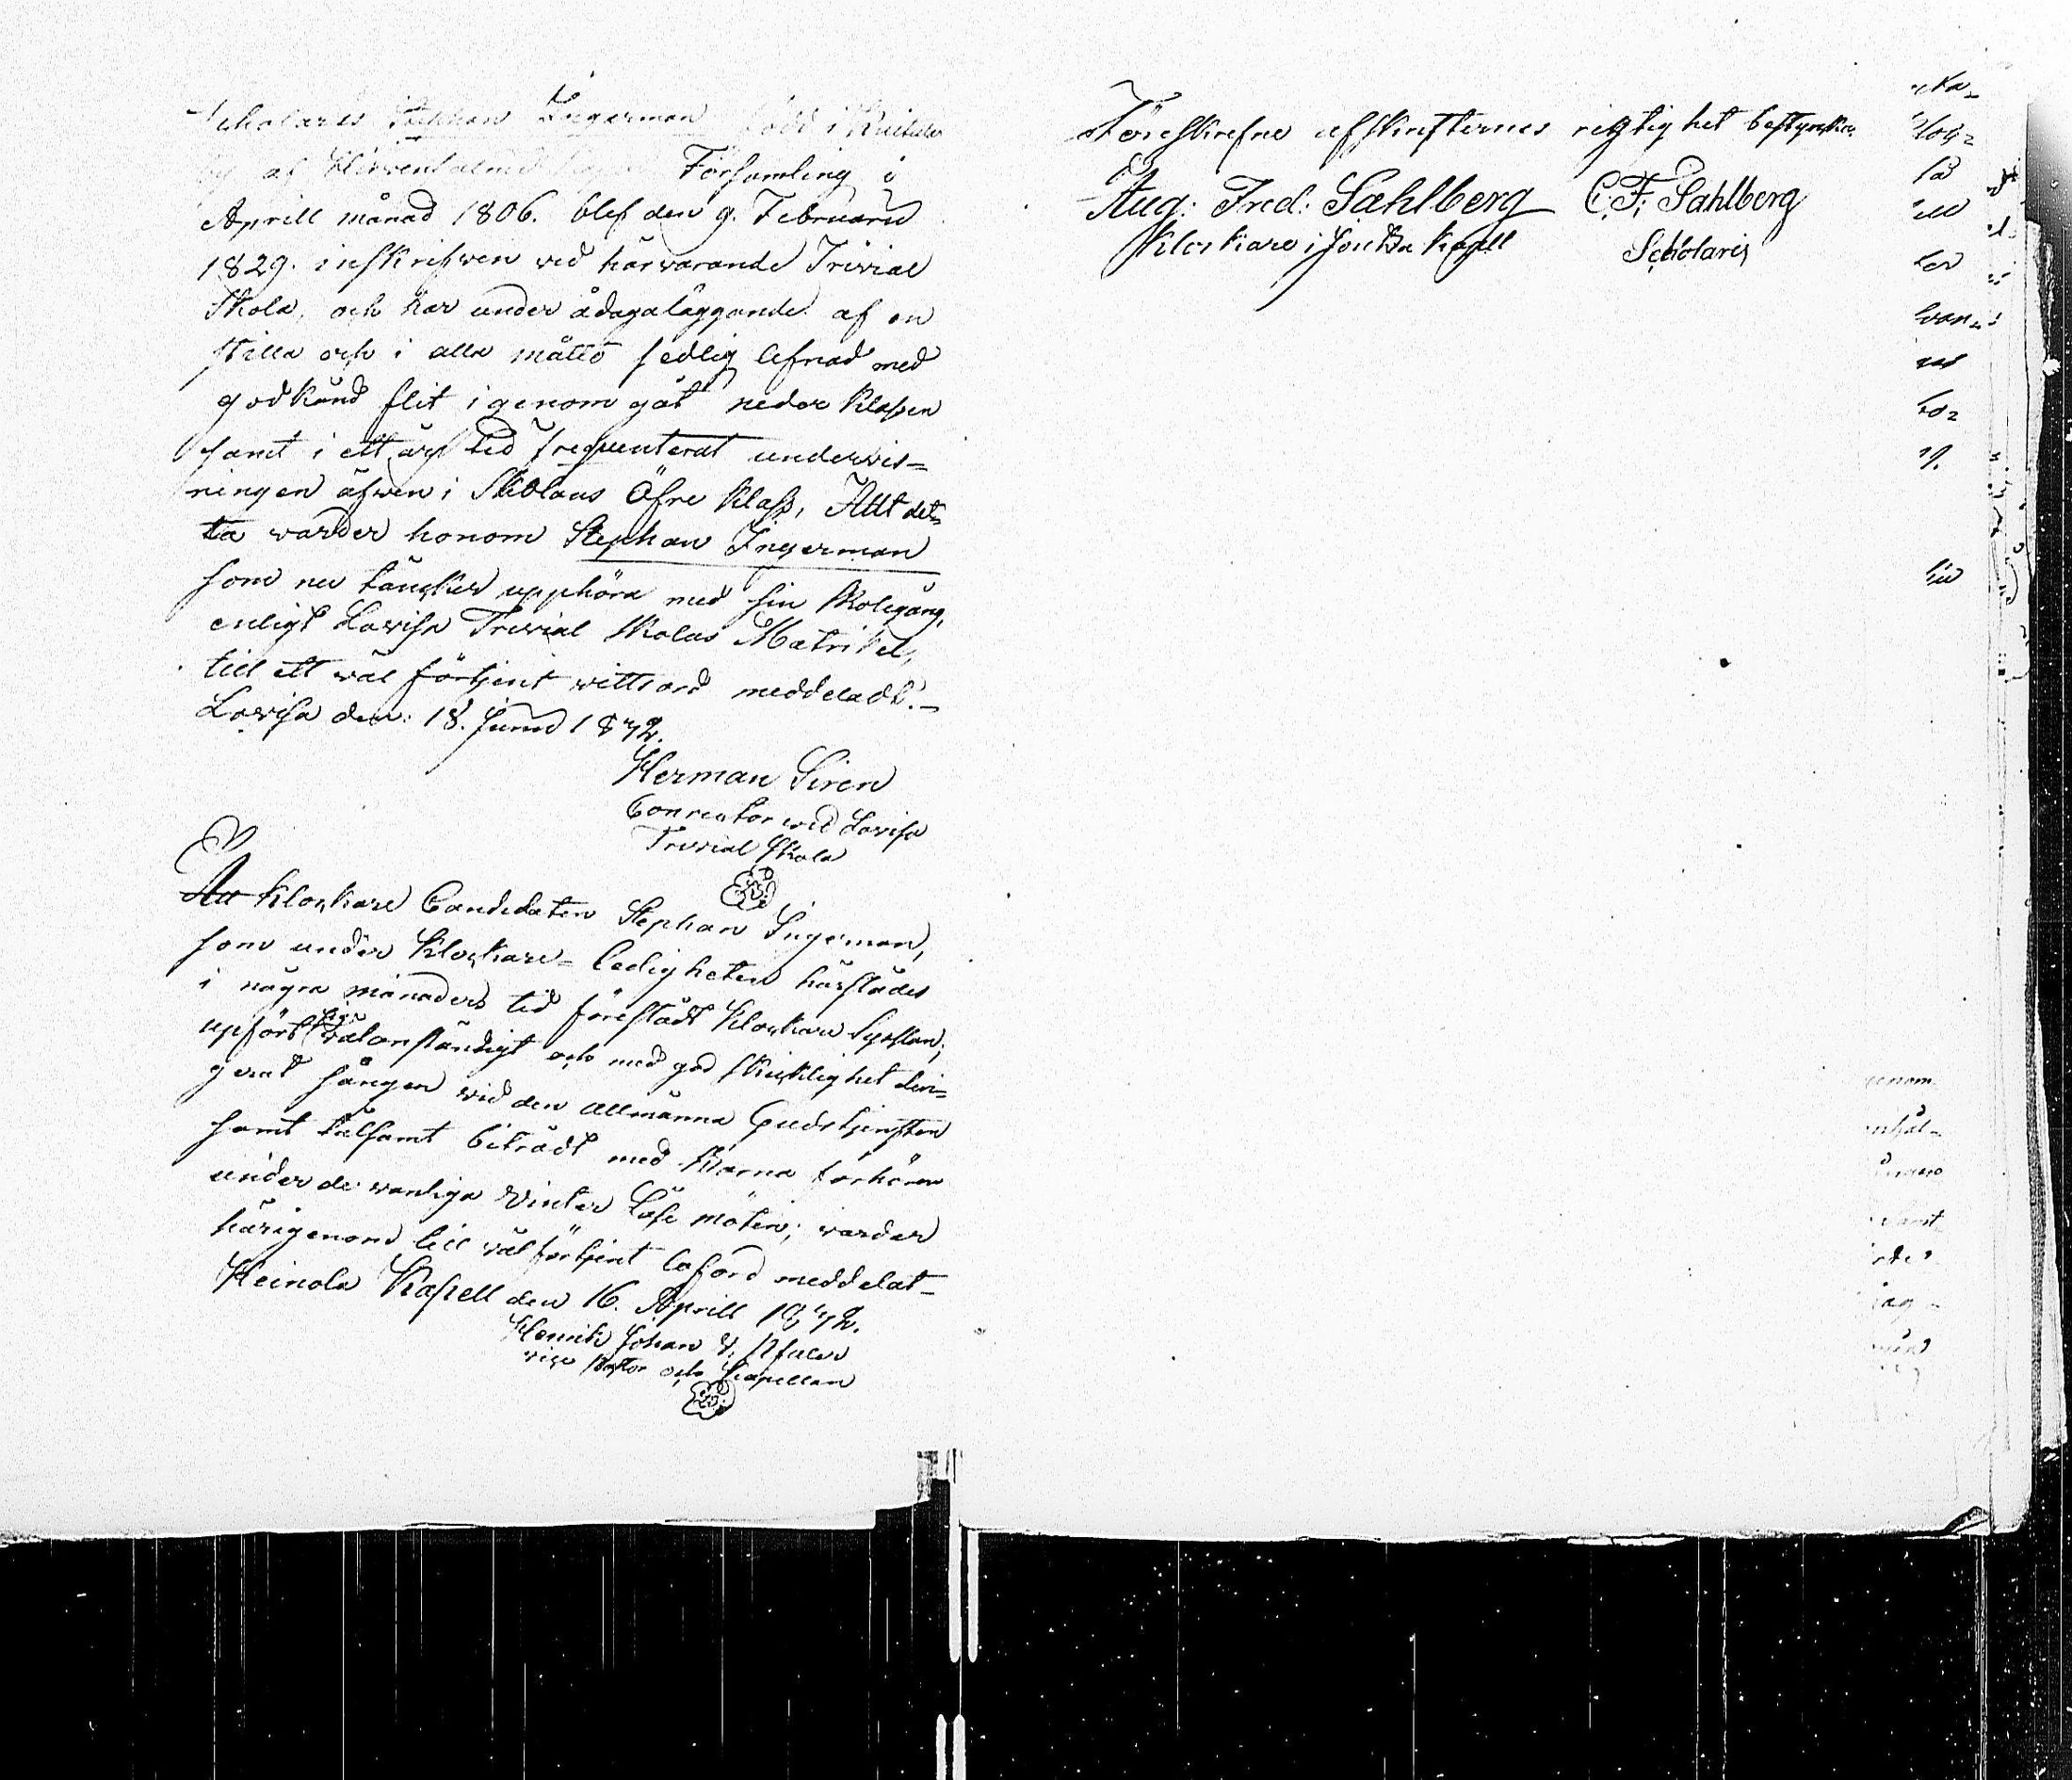 Scholaren Stephan Ingerman född i
by af Hirvensalmi Församling i
Aprill månad 1806. blef den 9. Februarii
1829. inskrifven vid härvarande Trivial
Skola, och har under ådagaläggande af en
stilla och i alla måtto sedlig lefnad med
godkänd flit igenomgåt neder klassen
samt i ett års tid frequenterat undervis=
ningen äfven i Skolans Öfre Klass, Allt det=
ta varder honom Stephan Ingerman
som nu täncker upphöra med sin skolegång,
enligt Lovisa Trivial skolas Matrikel,
till ett väl förtjent vittsord meddeladt.
Lovisa den: 18. Junii 1832.
Herman Siren
Conrector vid Lovisa
Trivial Skola
Klockare Candidaten Stephan Ingerman,
som under Klockare= ledigheten härstädes
i några månaders tid förestådt Klockare Sysslan;
upfört sig välanständigt och med god skicklighet diri=
gerat sången vid den allmänna Gudstjensten
samt biträdt med Barna förhören
under de vanliga Vinter Läse möten; varder
härigenom till väl förtjent loford meddelat
Heinola Kapell den 16. Aprill 1832.
Henrik Johan
vice Pastor och Kapellan
Föreskrefne afskrifternes rigtighet bestyrka
Aug: Fred: Sahlberg C. F. Sahlberg
Klockare i Kapell Scholaris